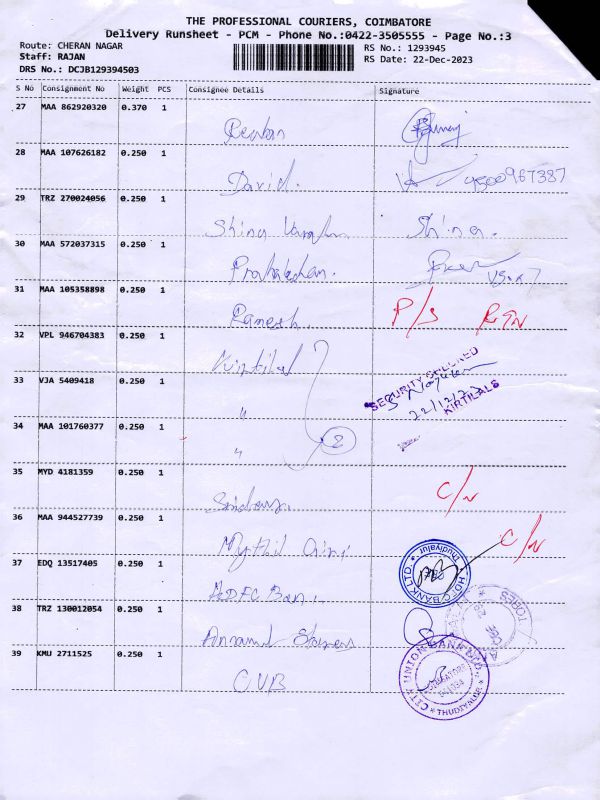 THE PROFESSIONAL COURIERS, COIMBATORE
Delivery Runsheet - PCM - Phone No.:0422-3505555 - Page No.:3
Route: CHERAN NAGAR
RS No.: 1293945
Staff: RAJAN
RS Date: 22-Dec-2023
DRS No.: DCJB129394503
S No Consignment No Weight PCS Consignee Details Signature
27 MAA 862920320 0.370 1
28 MAA 107626182 0.250 1
David.
29 TRZ 270024056 0.250 1
Shina Shina.
30 MAA 572037315 0.250 1
31 MAA 105358898 0.250 1
Ramesh. P/S RTN
32 VPL 946704383 0.250 1
Kirtilal
SECURITY CHECKED
33 VJA 5409418 0.250 1
22/12/23
KIRTILALS
"
34 MAA 101760377 0.250 1
" 2
35 MYD 4181359 0.250 1
C/N
36 MAA 944527739 0.250 1
C/N
37 EDQ 13517405 0.250 1
HDFC BANK LTD. Thudiyalur
HDFC Ban.
38 TRZ 130012054 0.250 1
39 KMU 2711525 0.250 1
CITY UNION BANK LTD. COIMBATORE * THUDIYALUR *
CUB